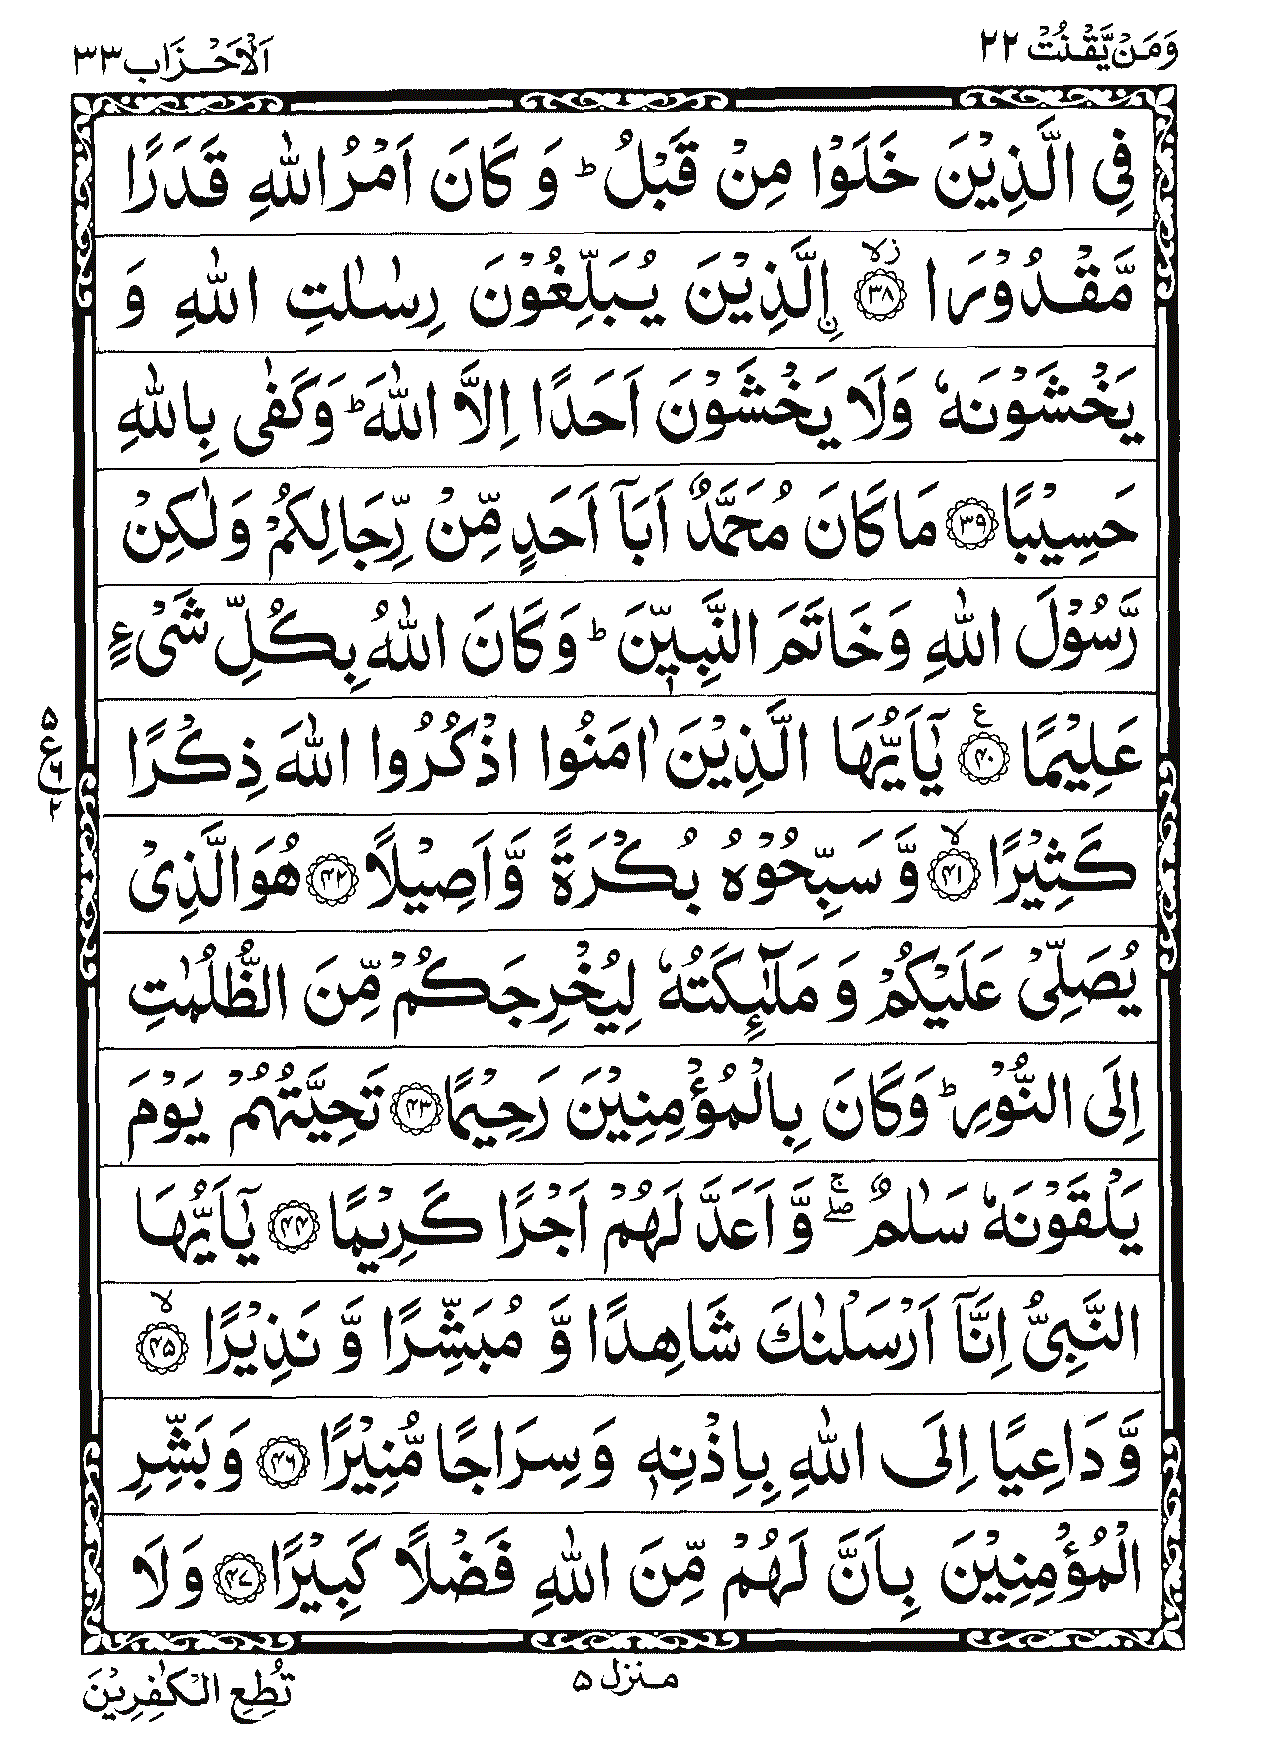 وَمَنْ يَّقْنُتْ ۲۲
اَلْاَحْزَاب ۳۳
فِى الَّذِيْنَ خَلَوْا مِنْ قَبْلُ ؕ وَ كَانَ اَمْرُ اللّٰهِ قَدَرًا
مَّقْدُوْرَا ۙ﴿۳۸﴾ اۨلَّذِيْنَ يُبَلِّغُوْنَ رِسٰلٰتِ اللّٰهِ وَ
يَخْشَوْنَهٗ وَلَا يَخْشَوْنَ اَحَدًا اِلَّا اللّٰهَ ؕ وَكَفٰى بِاللّٰهِ
حَسِيبًا ﴿۳۹﴾ مَا كَانَ مُحَمَّدٌ اَبَآ اَحَدٍ مِّنْ رِّجَالِكُمْ وَلٰكِنْ
رَّسُوْلَ اللّٰهِ وَخَاتَمَ النَّبِيّٖنَ ؕ وَكَانَ اللّٰهُ بِكُلِّ شَىْءٍ
عَلِيْمًا ﴿۴۰﴾ ع يٰۤاَيُّهَا الَّذِيْنَ اٰمَنُوا اذْكُرُوا اللّٰهَ ذِكْرًا
۵
ع
۶
۲
كَثِيْرًا ۙ﴿۴۱﴾ وَّ سَبِّحُوْهُ بُكْرَةً وَّاَصِيْلًا ﴿۴۲﴾ هُوَ الَّذِىْ
يُصَلِّىْ عَلَيْكُمْ وَ مَلٰٓئِكَتُهٗ لِيُخْرِجَكُمْ مِّنَ الظُّلُمٰتِ
اِلَى النُّوْرِ ؕ وَكَانَ بِالْمُؤْمِنِيْنَ رَحِيْمًا ﴿۴۳﴾ تَحِيَّتُهُمْ يَوْمَ
يَلْقَوْنَهٗ سَلٰمٌ ۖۚ وَّ اَعَدَّ لَهُمْ اَجْرًا كَرِيْمًا ﴿۴۴﴾ يٰۤاَيُّهَا
النَّبِىُّ اِنَّاۤ اَرْسَلْنٰكَ شَاهِدًا وَّ مُبَشِّرًا وَّ نَذِيْرًا ۙ﴿۴۵﴾
وَّ دَاعِيًا اِلَى اللّٰهِ بِاِذْنِهٖ وَسِرَاجًا مُّنِيْرًا ﴿۴۶﴾ وَ بَشِّرِ
الْمُؤْمِنِيْنَ بِاَنَّ لَهُمْ مِّنَ اللّٰهِ فَضْلًا كَبِيْرًا ﴿۴۷﴾ وَلَا
منزل ۵
تُطِعِ الْكٰفِرِيْنَ